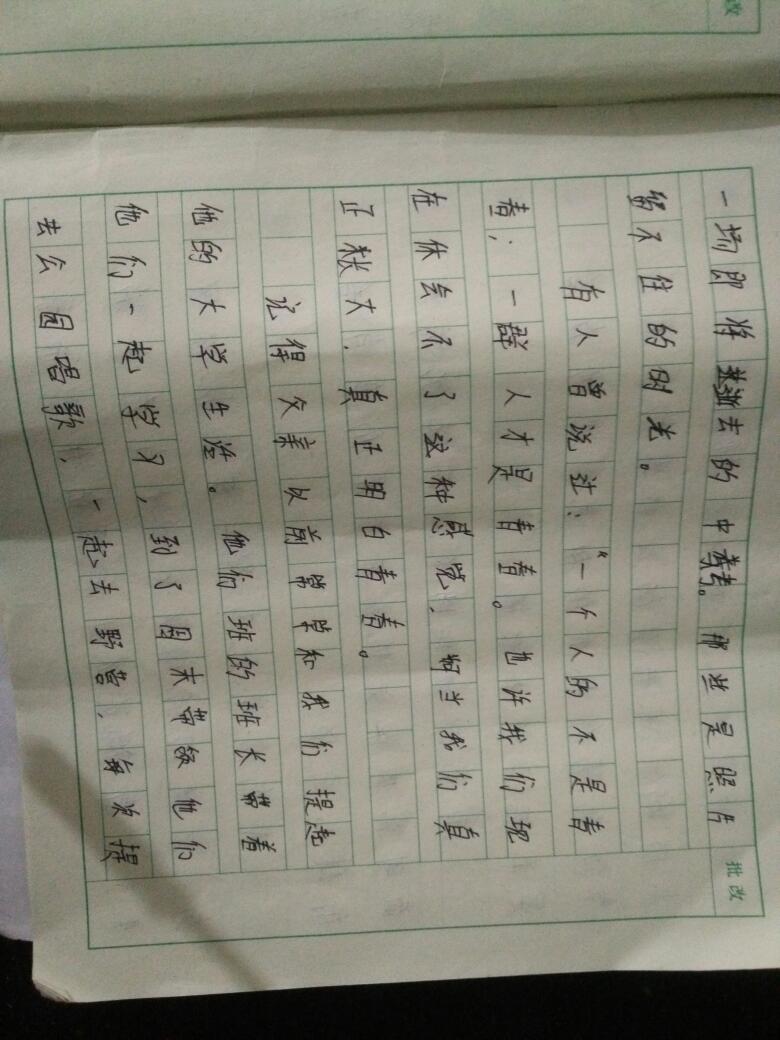 一场即将逝去的中考。那些是照片
留不住的时光。
有人曾说过：“一个人的不是青
春；一群人才是青春。也许我们现
在体会不了这种感觉，但当我们真
正长大，真正明白青春。
记得父亲以前常常和我们提起
他的大学生活。他们班的班长带着
他们一起学习，到了周末带领他们
去公园唱歌，一起去野营，每次提
批改
改